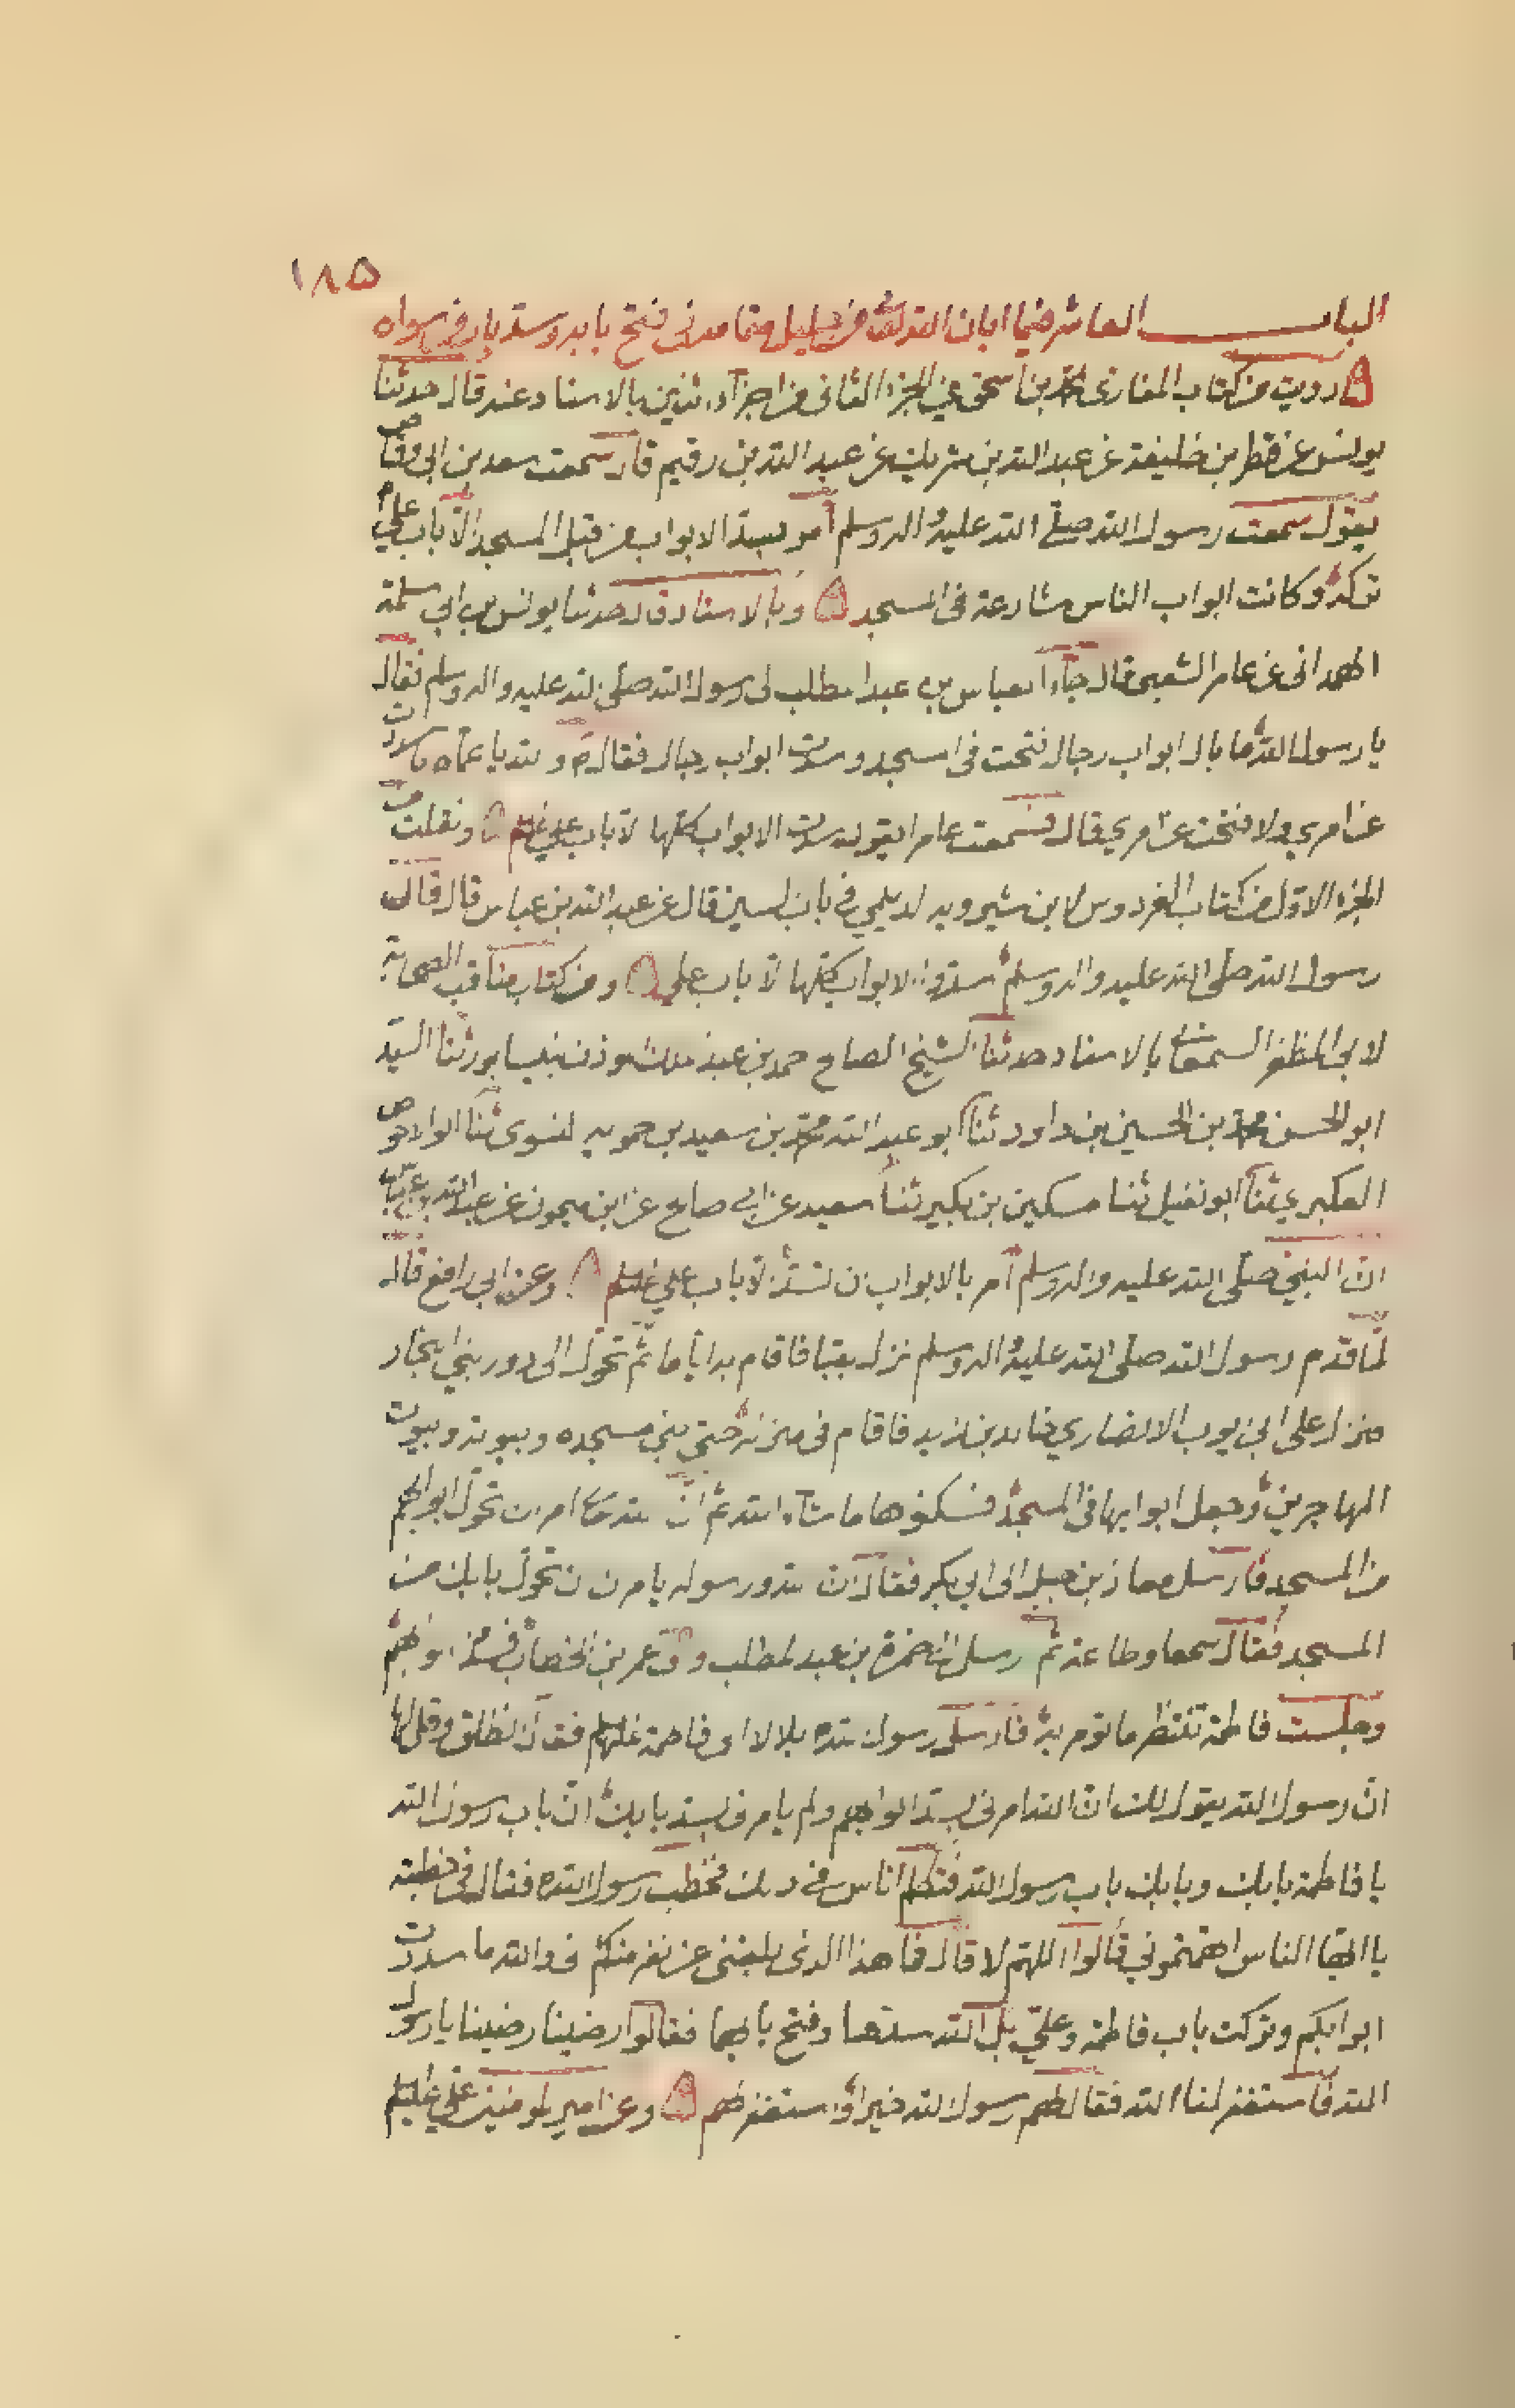 ١٨٥
الباب العاشر فيما ابان الله من جليل مقامه في فتح بابه وسد باب من سواه
رويت من كتاب المغازى محمد بن اسحق من الجزء الثانى من اجزاء اثنين بالاسناد عنه قال حدثنا
يونس عن فطر بن خليفة عن عبد الله بن شريك عن عبد الله بن رقيم قال سمعت سعد بن ابى وقاص
يقول سمعت رسول الله صلى الله عليه واله وسلم أمر بسد الابواب من قبل المسجد الا باب على م
تركه وكانت ابواب الناس شارعة فى المسجد وبالاسناد قال حدثنا يونس بن ابى سلمة
الهمدانى عن عامر الشعبى قال جاء العباس بن عبد المطلب الى رسول الله صلى الله عليه واله وسلم فقال
يا رسول الله ما بال ابواب رجال فتحت فى المسجد وسدت ابواب رجال فقال م والله يا عماه ما سددت
عن امري ولا فتحت عن امري قال فسمعت عامرا يقول سدت الابواب كلها الا باب علي ونقلت من
الجزء الاول من كتاب الفردوس لابن شيرويه الديلمي في باب السين قال عن عبد الله بن عباس قال قال
رسول الله صلى الله عليه واله وسلم سدوا الابواب كلها الا باب علي ومن كتاب مناقب الصحابة
لابى المظفر السمعانى بالاسناد حدثنا الشيخ الصالح احمد بن عبد الملك المؤذن بنيسابور ثنا السيد
ابو الحسن محمد بن الحسين بن داود ثنا ابو عبد الله محمد بن سعيد بن حمويه النسوى ثنا ابو الاحوص
العكبري ثنا ابو نفيل ثنا مسكين بن بكير ثنا سعيد عن ابى صالح عن ابن ميمون عن عبد الله بن عباس
ان النبي صلى الله عليه واله وسلم أمر بالابواب ان تسد الا باب علي وعن ابى رافع قال
لما قدم رسول الله صلى الله عليه واله وسلم نزل بقبا فاقام بها اياما ثم تحول الى دور بني النجار
منزل على ابى ايوب الانصاري خالد بن زيد فاقام فى منزله حتى بنى مسجده وبيوته وبيوت
المهاجرين وجعل ابوابها فى المسجد فسكنوها ما شاء الله ثم ان الله تعالى امر ان تحول ابوابهم
من المسجد فأرسل معاذ بن جبل الى ابى بكر فقال ان الله ورسوله يامرك ان تحول بابك من
المسجد فقال سمعا وطاعة ثم ارسل الى حمزة بن عبد المطلب والى عمر بن الخطاب فسد ابوابهم
وجلست فاطمة تنتظر ما تؤمر به فارسل رسول الله بلالا الى فاطمة فقال انطلق وقل لها
ان رسول الله يقول لك ان الله امرنى بسد ابوابهم ولم يامرنى بسد بابك ان باب رسول الله
يا فاطمة بابك وبابك باب رسول الله فتكلم الناس في ذلك فخطب رسول الله فقال فى خطبته
يا ايها الناس اتتهموني قالوا اللهم لا قال فما هذا الذى بلغنى عن نفر منكم فوالله ما سددت
ابوابكم وتركت باب فاطمة وعلي بل الله سدها وفتح بابهما فقالوا رضينا رضينا يا رسول
الله فاستغفر لنا الله فقال لهم رسول الله خيرا واستغفر لهم وعن امير المؤمنين علي